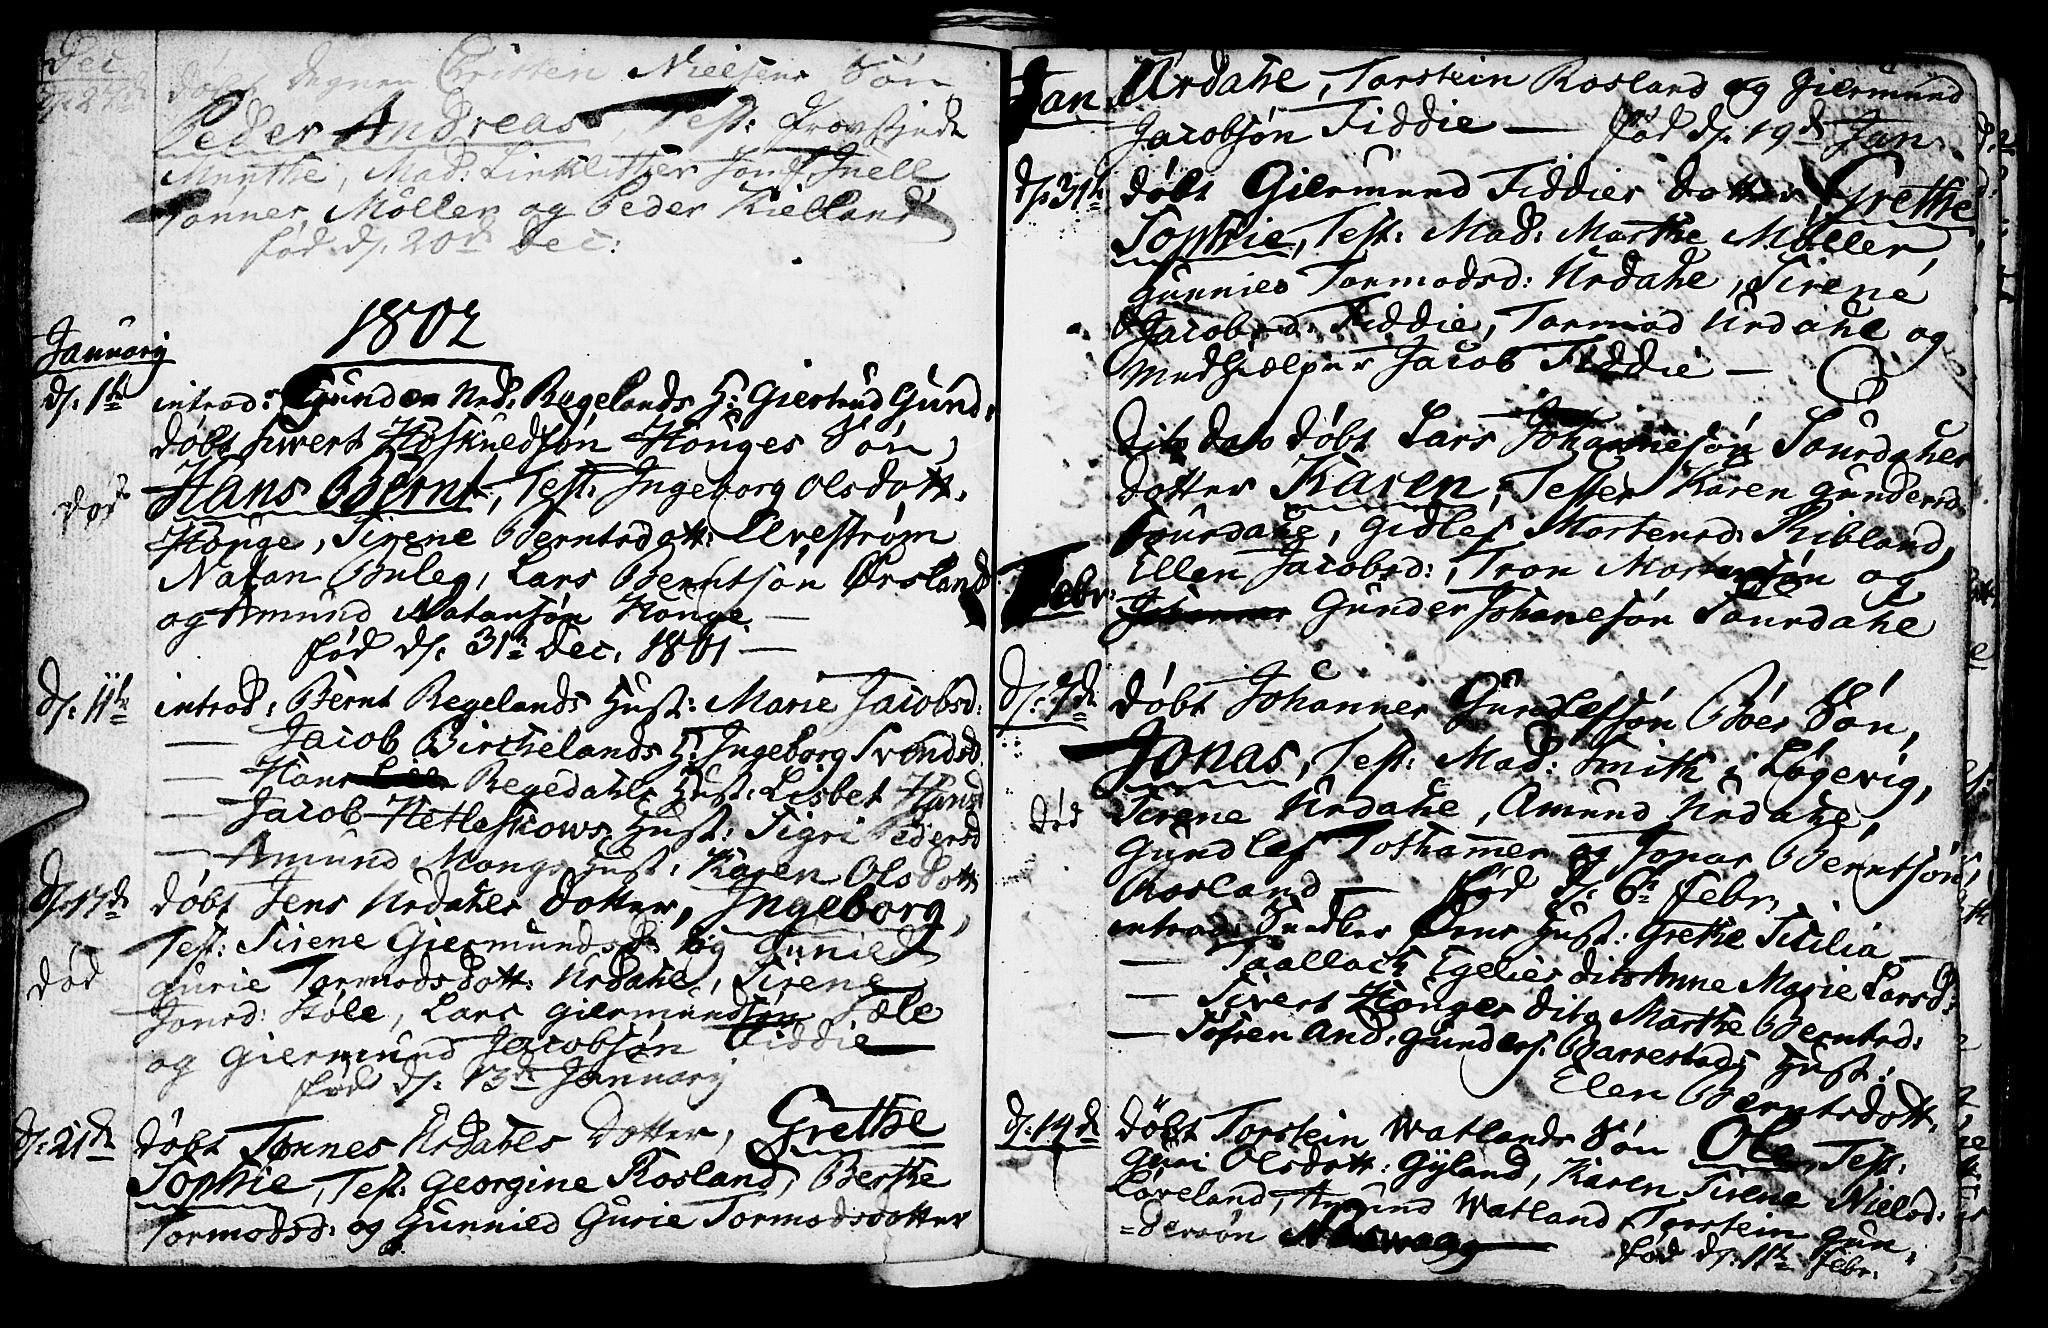 Dec:
d: 27de døbt degnen Christen Nielsens Søn
Peder Andreas, Test: Provstinde
Munthe, Mad: Linkletter Jomf. Snell
Tønnes Møller og Peder Kielland
fød d: 20de Dec:
1802
January
d: 1te introd: Gunder Ned: Regelands H: Giertrud Gund:
døbt Siwert Høskuldsøn Houges Søn,
død Hans Bernt, Test: Ingeborg Olsdott.
Houge, Sirene Berntsdott: Elvestrøm
Natan Buleg, Lars Berntsøn Ørsland
og Amund Natansøn Houge —
fød d: 31te Dec. 1801 —
d: 11te introd: Bernt Regelands Hust: Marie Jacobsd:
— Jacob Birchelands H: Ingeborg Svendsd
— Hans Regedahls Hust: Lisbet Hans
— Jacob Hetleskows Hust: Sigri Pedersd
— Amund Mongs Hust: Karen Olsdott
d: 17de døbt Jens Urdahls Dotter, Ingeborg,
Test: Sirene Giermundsd: og Gunild
død Gurie Tormodsdott: Urdahl, Sirene
Jonsd: Støle, Lars Giermundsøn Støle
og Giermund Jacobsøn Fiddie
fød d: 13de January
d: 21de døbt Tønnes Urdahls Dotter, Grethe
Sophie, Test: Georgine Rosland, Berthe
Tormodsd: og Gunnild Gurie Tormodsdotter
Jan. Urdahl, Torstein Rosland og Giermund
Jacobsøn Fiddie — fød d: 19de Jan.
d: 31te døbt Giermund Fiddies Dotter, Grethe
Sophie, Test: Mad: Marthe Møller,
Gunnild Tormodsd: Urdahl, Sirene
Jacobsd: Fiddie, Tormod Urdahl og
Medhielper Jacob Fiddie —
dito dato døbt Lars Johannesøn Sourdahls
dotter Karen, Testes Karen Gundersd
Sourdahl, Gidles Mortensd: Ribland,
Ellen Jacobsd:, Tron Mortensøn og
Febr: Gunder Johanesøn Sourdahl
d: 7de døbt Johannes Gundlefsøn Bøes Søn,
Jonas, Test: Mad: Smith i Løgevig,
død Sirene Urdahl, Amund Urdahl,
Gundlef Tothamer og Jonas Berntsøn
Rosland — fød d: 6te Febr.
introd: Gundlef Øens Hust: Grethe Sicilia —
— Taallack Egelies dito Anne Marie Larsd:
— Sivert Houges dito Marthe Berntsd:
— Søfren And: Gunders: Barrestads Hust:
Elen Berntsdott.
d: 14de døbt Torstein Watlands Søn Ole, Test:
Guri Olsdott: Gyland, Karen Sirene Nielsd:
Løveland, Amund Watland, Torstein Gun,
=dersøn
fød d: 11te Febr.